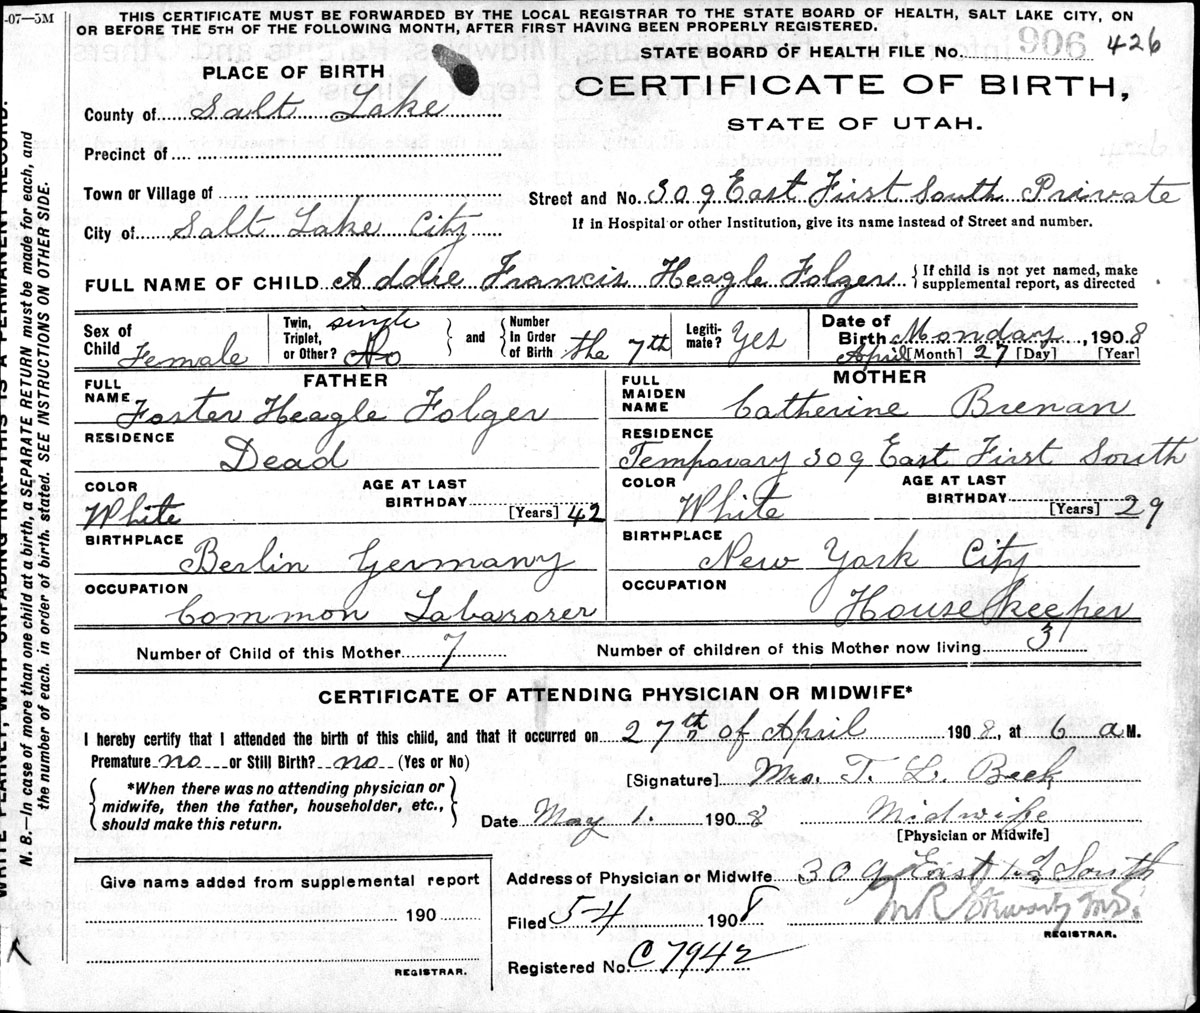 -07—5M
THIS CERTIFICATE MUST BE FORWARDED BY THE LOCAL REGISTRAR TO THE STATE BOARD OF HEALTH, SALT LAKE CITY, ON
OR BEFORE THE 5TH OF THE FOLLOWING MONTH, AFTER FIRST HAVING BEEN PROPERLY REGISTERED.
STATE BOARD OF HEALTH FILE No. 906 426
PLACE OF BIRTH
CERTIFICATE OF BIRTH,
STATE OF UTAH.
County of Salt Lake
Precinct of
Town or Village of
Street and No. 309 East First South Private
City of Salt Lake City
If in Hospital or other Institution, give its name instead of Street and number.
FULL NAME OF CHILD Addie Francis Heagle Folger { If child is not yet named, make supplemental report, as directed
Sex of Child Female
Twin, Triplet, or Other? single No
and { Number In Order of Birth the 7th
Legitimate? Yes
Date of Birth Monday, 1908
April [Month] 27 [Day] [Year]
FATHER
MOTHER
FULL NAME Foster Heagle Folger
FULL MAIDEN NAME Catherine Brenan
RESIDENCE Dead
RESIDENCE Temporary 309 East First South
COLOR White AGE AT LAST BIRTHDAY [Years] 42
COLOR White AGE AT LAST BIRTHDAY [Years] 29
BIRTHPLACE Berlin Germany
BIRTHPLACE New York City
OCCUPATION Common Labarorer
OCCUPATION House keeper
Number of Child of this Mother 7 Number of children of this Mother now living 3
CERTIFICATE OF ATTENDING PHYSICIAN OR MIDWIFE*
I hereby certify that I attended the birth of this child, and that it occurred on 27th of April 1908, at 6 a M.
Premature no or Still Birth? no (Yes or No)
[Signature] Mrs. T. L. Beck
{ *When there was no attending physician or midwife, then the father, householder, etc., should make this return. }
Date May 1. 1908 Midwife
[Physician or Midwife]
Give name added from supplemental report
190
REGISTRAR.
Address of Physician or Midwife 309 East 1st South
Filed 5-4 1908
REGISTRAR.
Registered No. C7942
WRITE PLAINLY, WITH UNFADING INK—THIS IS A PERMANENT RECORD.
N. B.—In case of more than one child at a birth, a SEPARATE RETURN must be made for each, and
the number of each, in order of birth, stated. SEE INSTRUCTIONS ON OTHER SIDE.